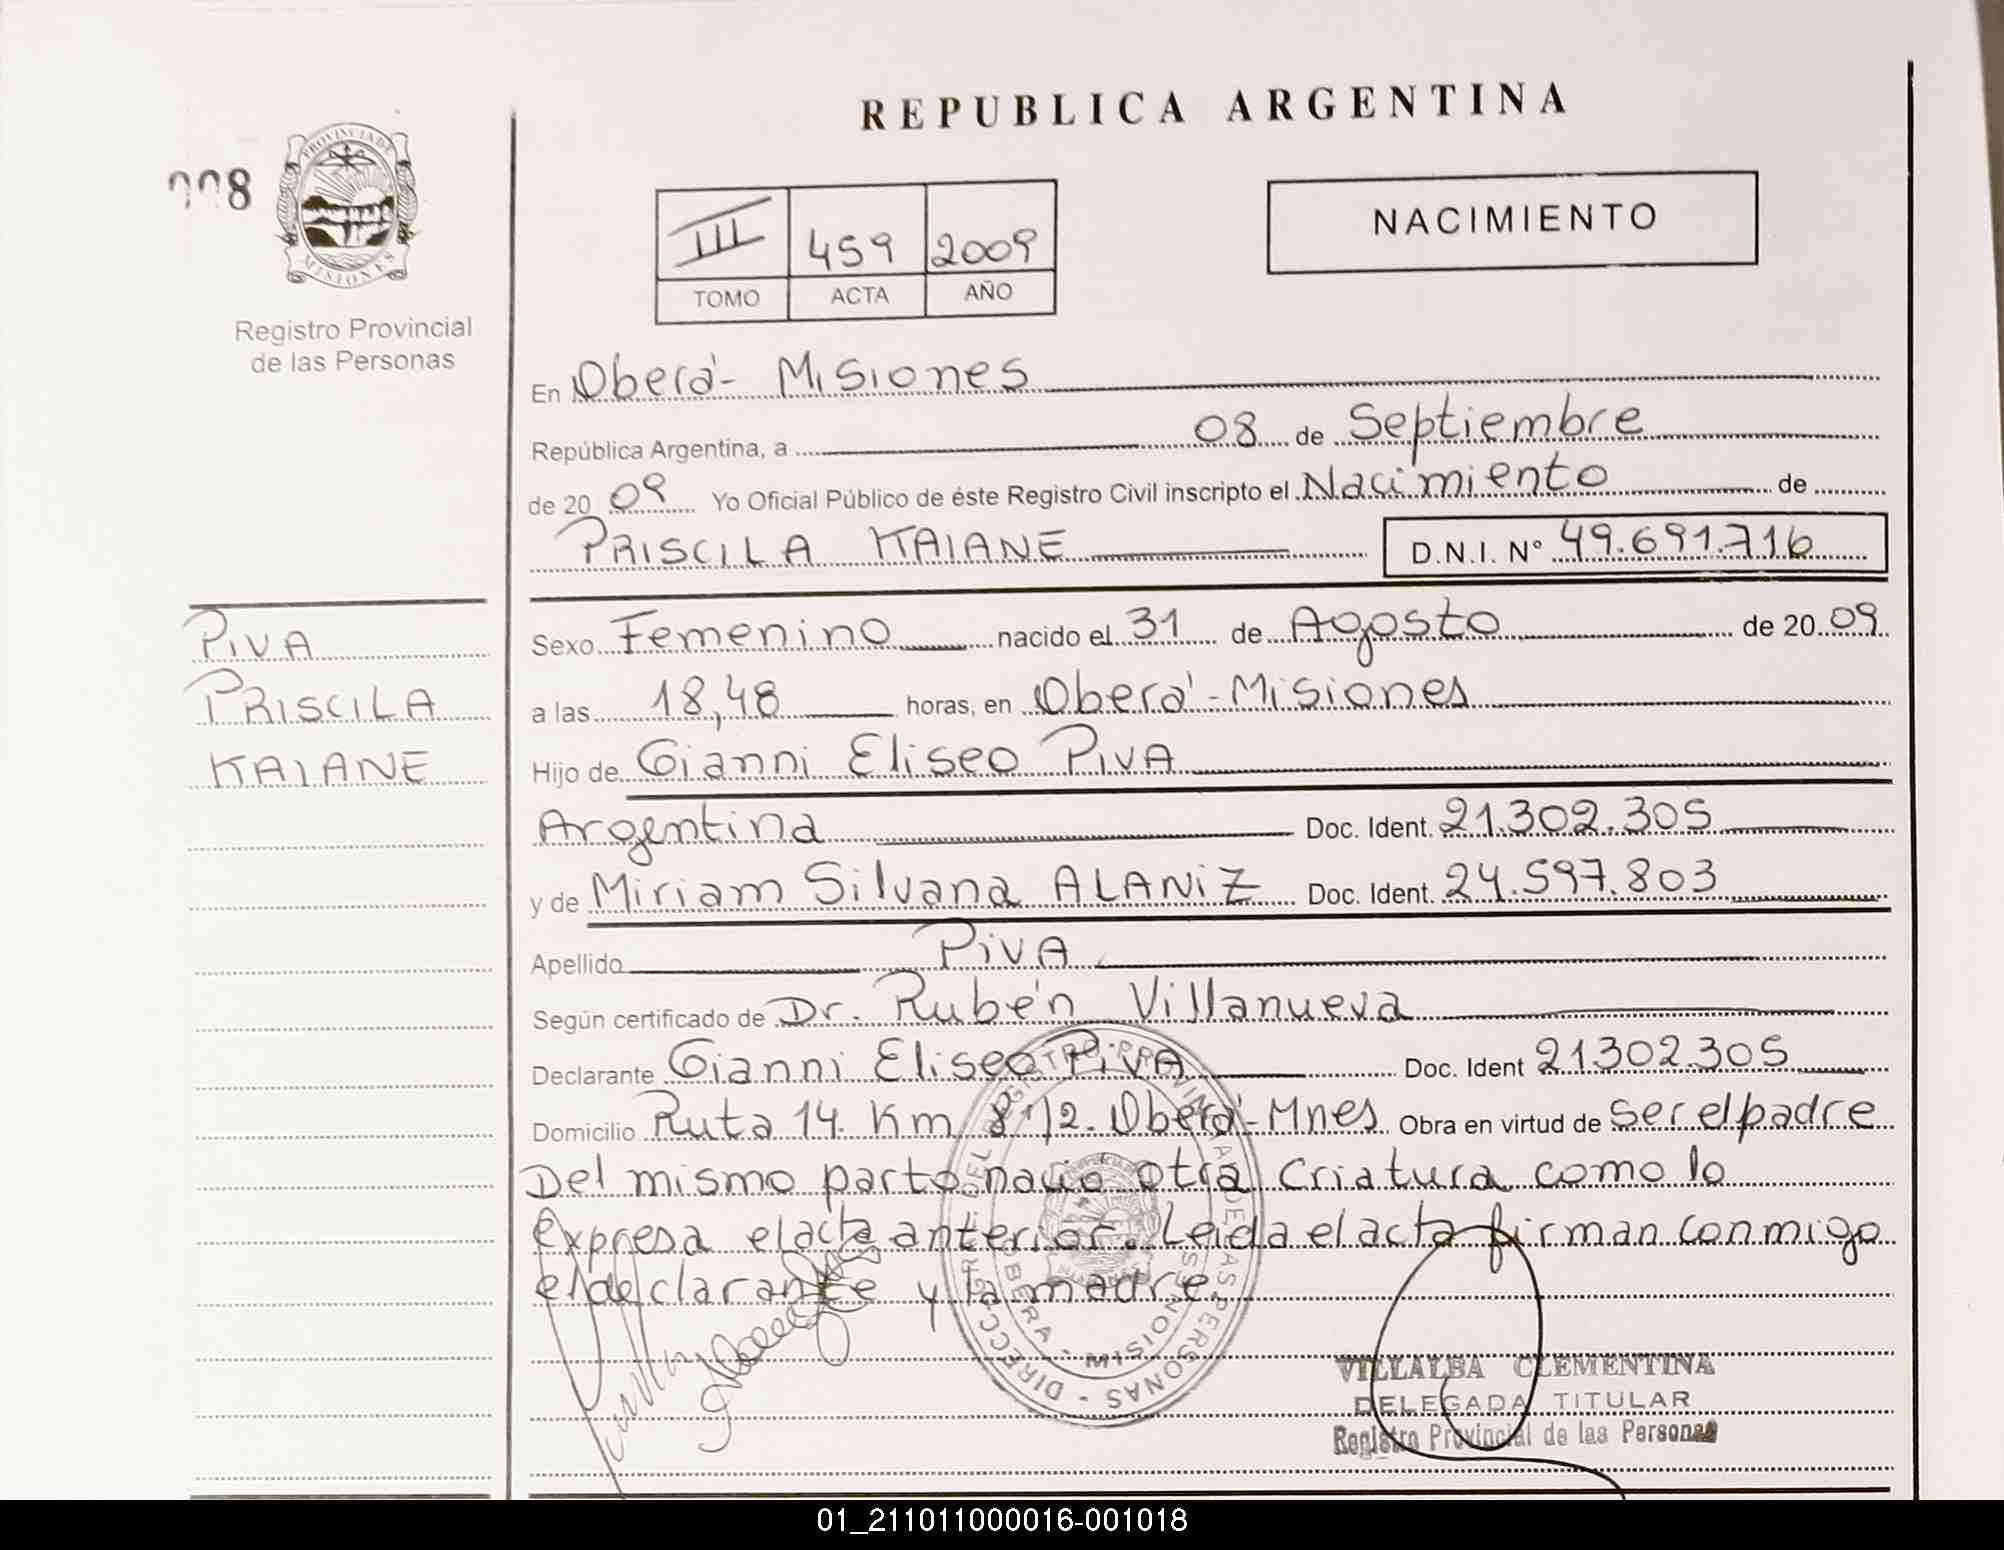 REPUBLICA ARGENTINA
008
PROVINCIA DE
MISIONES
Registro Provincial
de las Personas
III 459 2009
TOMO ACTA AÑO
NACIMIENTO
En Oberá - Misiones
República Argentina, a 08 de Septiembre
de 20 09 Yo Oficial Público de éste Registro Civil inscripto el Nacimiento de
PRISCILA KAIANE D.N.I. N° 49.691.716
PIVA
PRISCILA
KAIANE
Sexo Femenino nacido el 31 de Agosto de 20 09
a las 18,48 horas, en Oberá - Misiones
Hijo de Gianni Eliseo PIVA
Argentina Doc. Ident. 21.302.305
y de Miriam Silvana ALANIZ Doc. Ident. 24.597.803
Apellido PIVA
Según certificado de Dr. Rubén Villanueva
Declarante Gianni Eliseo PIVA Doc. Ident 21302.305
Domicilio Ruta 14. Km 8 1/2. Oberá - Mnes Obra en virtud de ser el padre
Del mismo parto nacio otra criatura como lo
expresa el acta anterior. Leida el acta firman conmigo
el declarante y la madre.
VILLALBA CLEMENTINA
DELEGADA TITULAR
Registro Provincial de las Personas
01_211011000016-001018